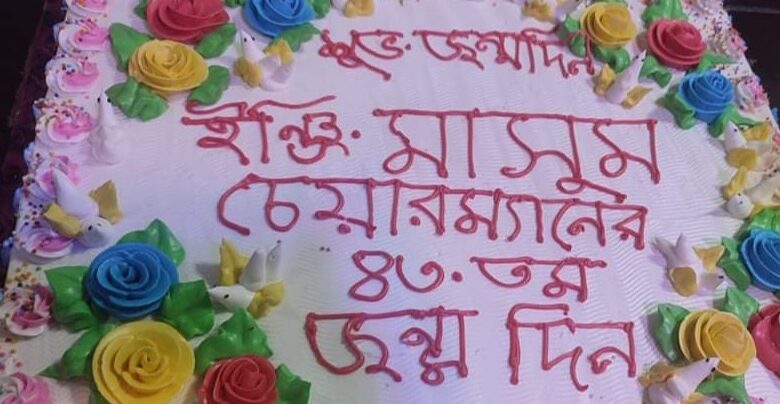 শুভ. জন্মদিন
ইন্জিঃ মাসুম
চেয়ারম্যানের
৪৩.তম
জন্ম দিন